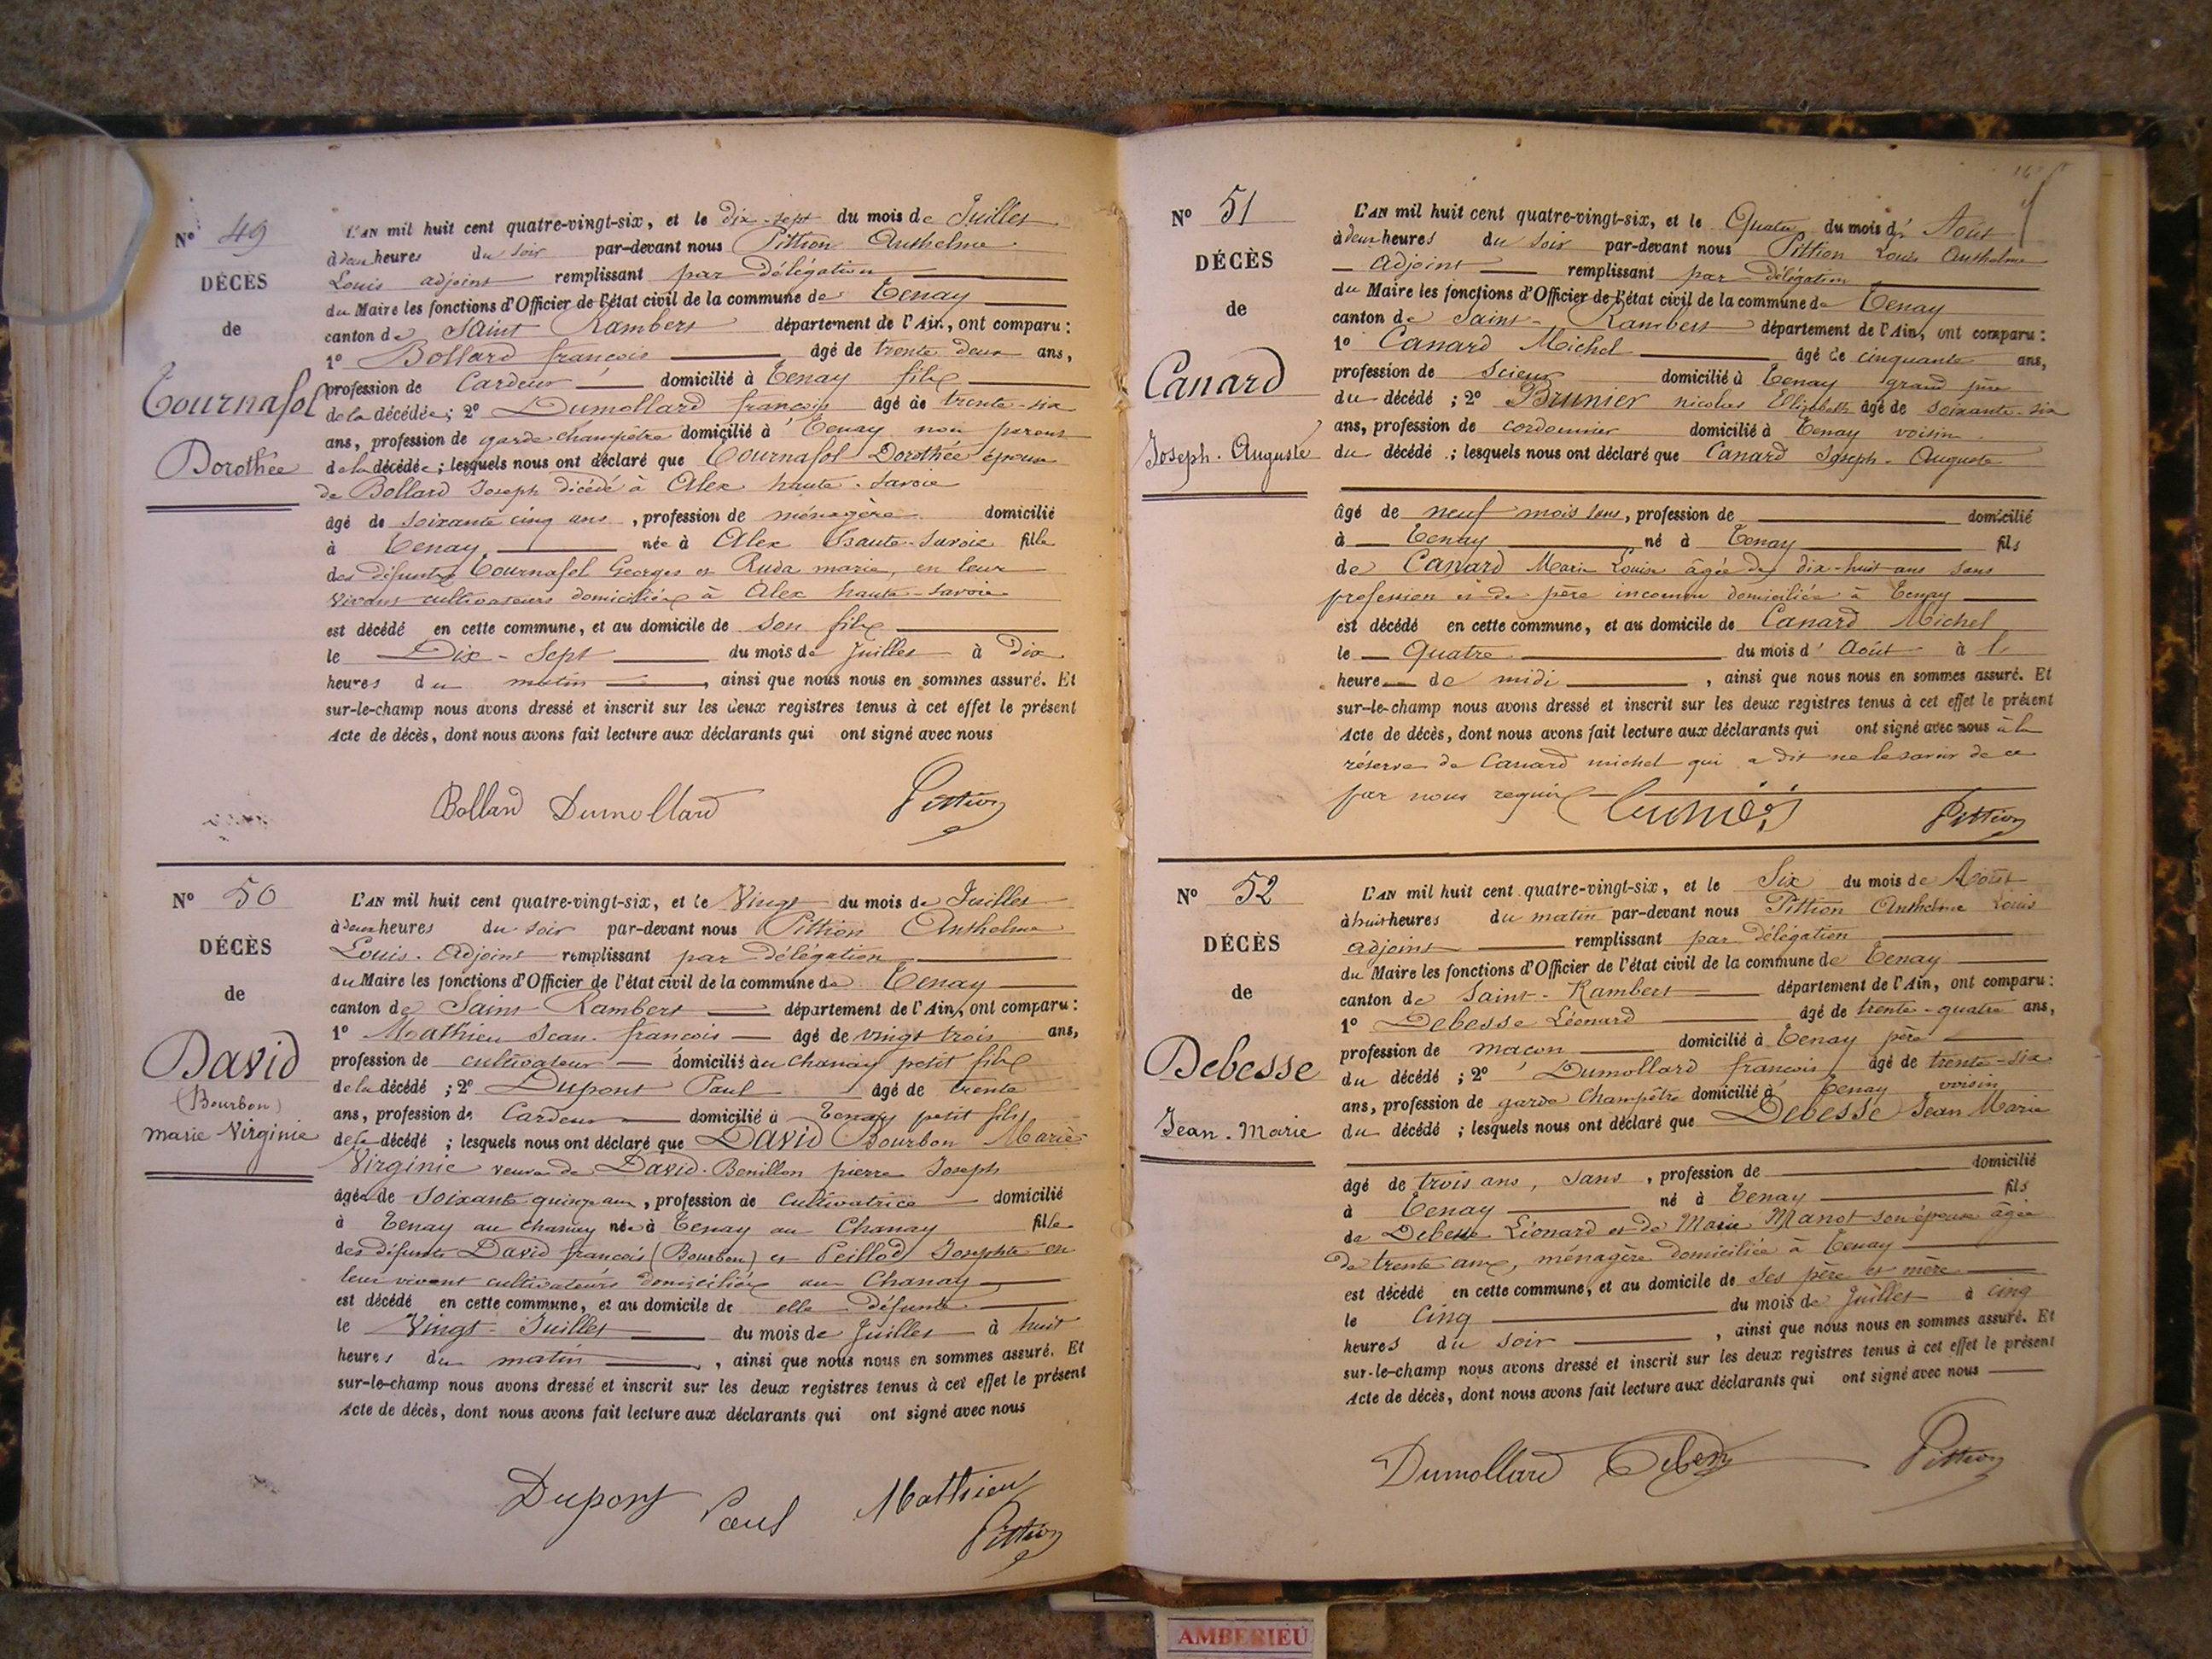 N° 49
DÉCÈS
de
Tournafol
Dorothée
L'AN mil huit cent quatre-vingt-six, et le dix-sept du mois de Juillet
à deux heures du soir par-devant nous Pittion Anthelme
Louis adjoint remplissant par délégation
du Maire les fonctions d'Officier de l'état civil de la commune de Tenay
canton de Saint Rambert département de l'Ain, ont comparu :
1° Bollard françois âgé de trente deux ans,
profession de Cardeur domicilié à Tenay fils
de la décédée ; 2° Dumollard françois âgé de trente-six
ans, profession de garde champêtre domicilié à Tenay non parent
de la décédée ; lesquels nous ont déclaré que Tournafol Dorothée épouse
de Bollard Joseph décédé à Alex haute-Savoie
âgé de soixante cinq ans, profession de ménagère domicilié
à Tenay née à Alex haute-Savoie fille
des défunts Tournafol Georges et Ruda marie, en leur
vivant cultivateurs domiciliés à Alex haute-Savoie
est décédé en cette commune, et au domicile de son fils
le Dix-Sept du mois de Juillet à Dix
heures du matin, ainsi que nous nous en sommes assuré. Et
sur-le-champ nous avons dressé et inscrit sur les deux registres tenus à cet effet le présent
Acte de décès, dont nous avons fait lecture aux déclarants qui ont signé avec nous
Bollard Dumollard Pittion
N° 50
DÉCÈS
de
David
(Bourbon)
Marie Virginie
L'AN mil huit cent quatre-vingt-six, et le Vingt du mois de Juillet
à deux heures du soir par-devant nous Pittion Anthelme
Louis. Adjoint remplissant par délégation
du Maire les fonctions d'Officier de l'état civil de la commune de Tenay
canton de Saint Rambert département de l'Ain, ont comparu :
1° Mathieu Jean-françois âgé de vingt trois ans,
profession de cultivateur domicilié au Chanay petit fils
de la décédé ; 2° Dupont Paul âgé de trente
ans, profession de Cardeur domicilié à Tenay petit fils
de la décédé ; lesquels nous ont déclaré que David Bourbon Marie
Virginie veuve de David-Benillon pierre Joseph
âgée de Soixante quinze ans, profession de Cultivatrice domicilié
à Tenay au chanay née à Tenay au Chanay fille
des défunts David françois (Bourbon) et Peillod Josephte en
leur vivant cultivateurs domiciliés au Chanay
est décédé en cette commune, et au domicile de elle défunte
le Vingt-Juillet du mois de Juillet à huit
heures du matin, ainsi que nous nous en sommes assuré. Et
sur-le-champ nous avons dressé et inscrit sur les deux registres tenus à cet effet le présent
Acte de décès, dont nous avons fait lecture aux déclarants qui ont signé avec nous
Dupont Paul Mathieu
Pittion
N° 51
DÉCÈS
de
Canard
Joseph-Auguste
L'AN mil huit cent quatre-vingt-six, et le Quatre du mois d'Août
à deux heures du soir par-devant nous Pittion Louis Anthelme
Adjoint remplissant par délégation
du Maire les fonctions d'Officier de l'état civil de la commune de Tenay
canton de Saint-Rambert département de l'Ain, ont comparu :
1° Canard Michel âgé de cinquante ans,
profession de scieur domicilié à Tenay grand père
du décédé ; 2° Brunier nicolas Ellizabeth âgé de soixante-six
ans, profession de cordonnier domicilié à Tenay voisin
du décédé ; lesquels nous ont déclaré que Canard Joseph-Auguste
âgé de neuf mois sans, profession de domicilié
à Tenay né à Tenay fils
de Canard Marie Louise âgée de dix-huit ans sans
profession et de père inconnu domiciliée à Tenay
est décédé en cette commune, et au domicile de Canard Michel
le Quatre du mois d'Août à
heure de midi, ainsi que nous nous en sommes assuré. Et
sur-le-champ nous avons dressé et inscrit sur les deux registres tenus à cet effet le présent
Acte de décès, dont nous avons fait lecture aux déclarants qui ont signé avec nous à la
réserve de Canard michel qui a dit ne le savoir de ce
par nous requis
Pittion
N° 52
DÉCÈS
de
Debesse
Jean-Marie
L'AN mil huit cent quatre-vingt-six, et le Six du mois de Août
à huit heures du matin par-devant nous Pittion Anthelme Louis
adjoint remplissant par délégation
du Maire les fonctions d'Officier de l'état civil de la commune de Tenay
canton de Saint-Rambert département de l'Ain, ont comparu :
1° Debesse Léonard âgé de trente-quatre ans,
profession de macon domicilié à Tenay père
du décédé ; 2° Dumollard françois âgé de trente-six
ans, profession de garde Champêtre domicilié à Tenay voisin
du décédé ; lesquels nous ont déclaré que Debesse Jean Marie
âgé de trois ans, sans, profession de domicilié
à Tenay né à Tenay fils
de Debesse Léonard et de Marie Manot son épouse âgée
de trente ans, ménagère domiciliée à Tenay
est décédé en cette commune, et au domicile de ses père et mère
le Cinq du mois de Juillet à cinq
heures du soir, ainsi que nous nous en sommes assuré. Et
sur-le-champ nous avons dressé et inscrit sur les deux registres tenus à cet effet le présent
Acte de décès, dont nous avons fait lecture aux déclarants qui ont signé avec nous
Dumollard Debesse Pittion
AMBERIEU